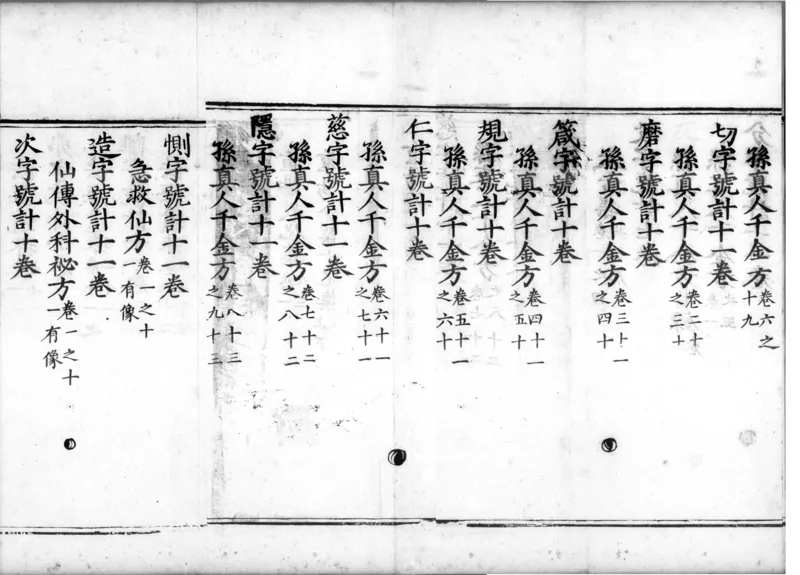 孫真人千金方卷六之十九
切字號計十一卷
孫真人千金方卷二十之三十
磨字號計十卷
孫真人千金方卷三十一之四十
箴字號計十卷
孫真人千金方卷四十一之五十
規字號計十卷
孫真人千金方卷五十一之六十
仁字號計十卷
孫真人千金方卷六十一之七十一
慈字號計十一卷
孫真人千金方卷七十二之八十二
隱字號計十一卷
孫真人千金方卷八十三之九十三
惻字號計十一卷
急救仙方卷一之十一有像
造字號計十一卷
仙傳外科祕方卷一之十一有像
次字號計十卷